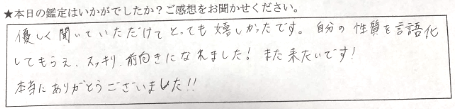 ★本日の鑑定はいかがでしたか？ご感想をお聞かせください。
優しく聞いていただけてとっても嬉しかったです。自分の性質を言語化
してもらえ、スッキリ、前向きになれました！また来たいです！
本当にありがとうございました!!